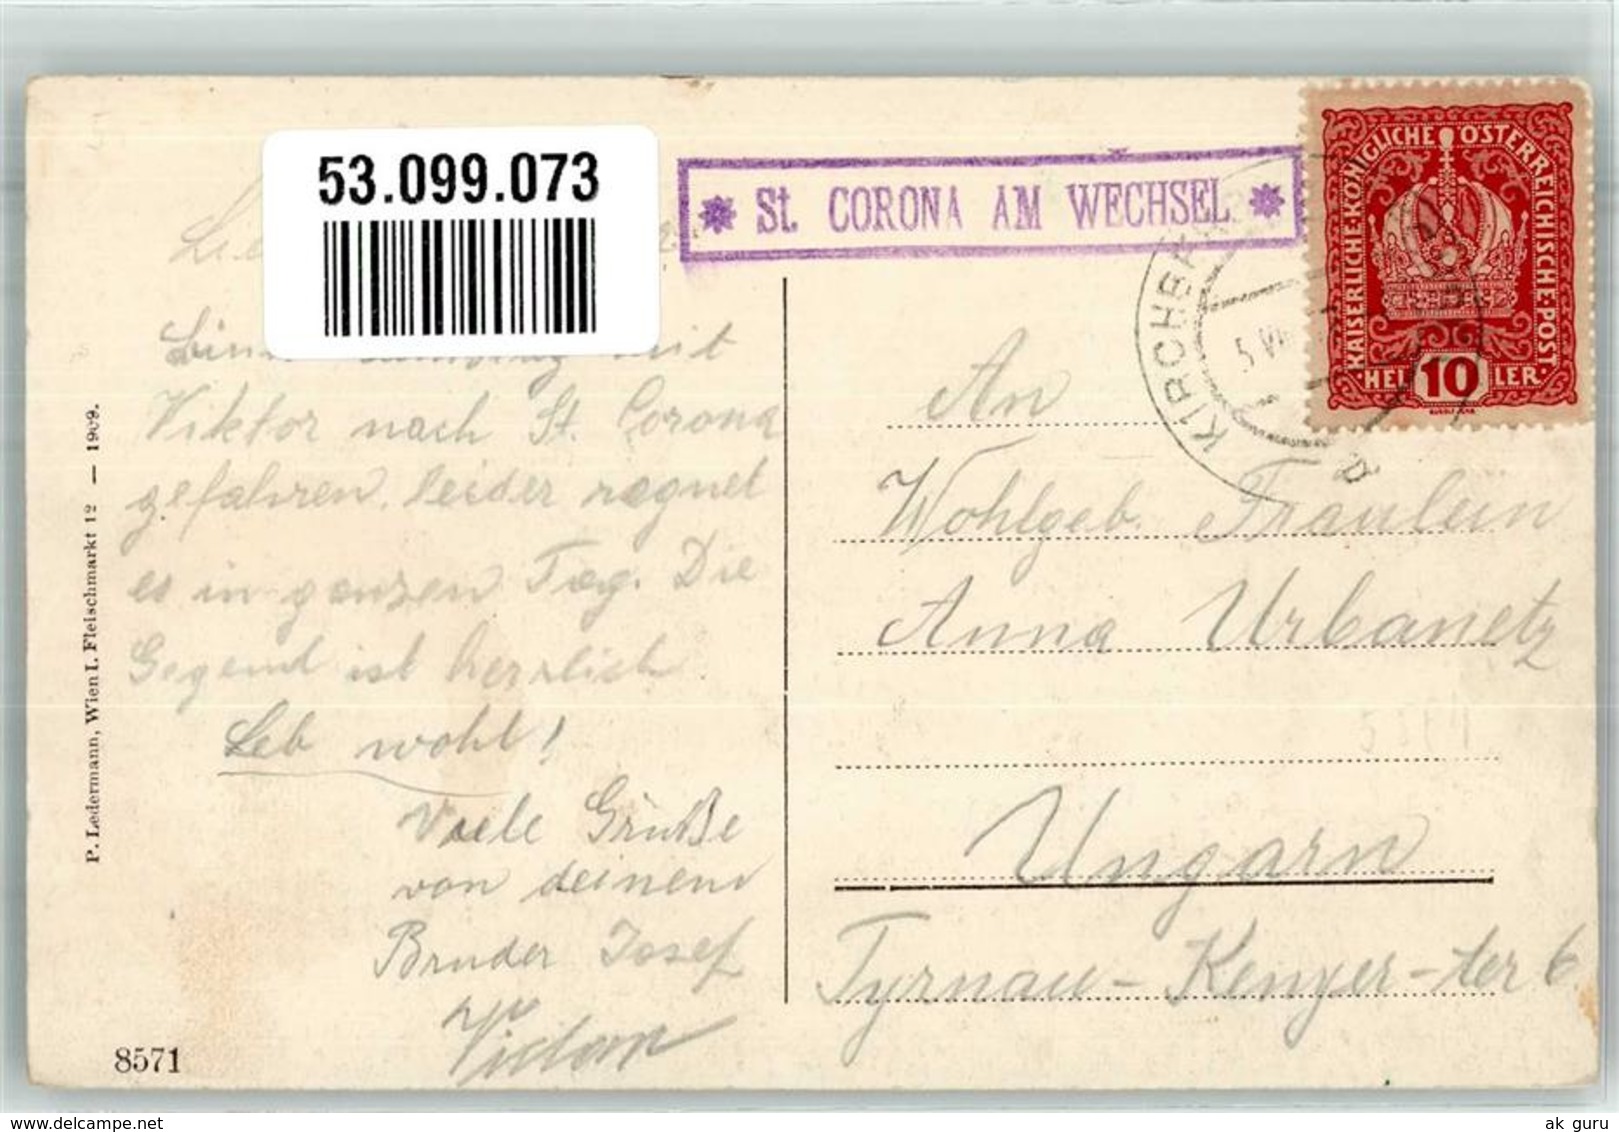 53.099.073
* St. CORONA AM WECHSEL *
KAISERLICHE·KÖNIGLICHE ÖSTERREICHISCHE·POST
HEL 10 LER
KIRCHBERG
5 VII
Bin mit
Viktor nach St. Corona
gefahren, leider regnet
es in ganzen Tag. Die
Gegend ist herrlich
Leb wohl!
Viele Grüße
von deinem
Bruder Josef
Victor
An
Wohlgeb. Fräulein
Anna Urbanetz
Ungarn
Tyrnau-Kenyer-ter 6
P. Ledermann, Wien I. Fleischmarkt 12 — 1909.
8571
ak guru